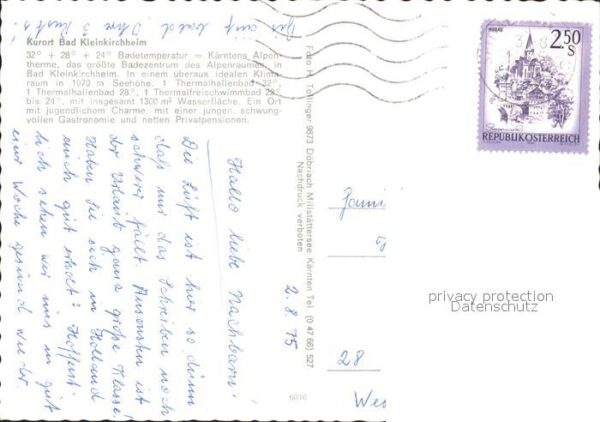 Kurort Bad Kleinkirchheim
32° + 28° + 24° Badetemperatur = Kärntens Alpen-
therme, das größte Badezentrum des Alpenraumes, in
Bad Kleinkirchheim. In einem überaus idealen Klima-
raum in 1070 m Seehöhe. 1 Thermalhallenbad 32°,
1 Thermalhallenbad 28°, 1 Thermalfreischwimmbad 28°
bis 24°, mit insgesamt 1300 m² Wasserfläche. Ein Ort
mit jugendlichem Charme, mit einer jungen, schwung-
vollen Gastronomie und netten Privatpensionen.
Hallo liebe Nachbarn!
Die Luft ist hier so dünn
daß mir das Schreiben noch
schwerer fällt. Ansonsten ist
der Urlaub ganz große Klasse.
Haben Sie sich in Holland
auch gut erholt? Hoffent-
lich sehen wir uns in gut
einer Woche gesund wieder.
Bis auf bald Ihre 3
2.8.75
Foto H. Tollinger 9873 Döbriach Millstättersee Kärnten Tel. (0 47 66) 527
Nachdruck verboten
6016
2.50
S
REPUBLIK ÖSTERREICH
Fami
28
Wes
privacy protection
Datenschutz